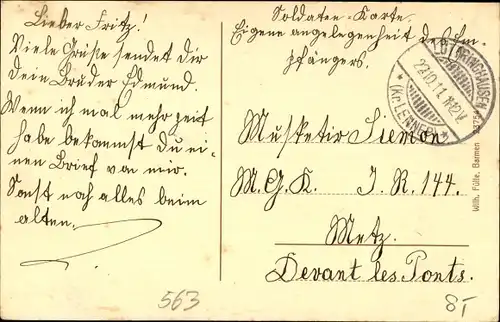 Lieber Fritz!
Viele Grüße sendet dir
dein Bruder Edmund.
Wenn ich mal mehr zeit
habe bekommst du ei-
nen Brief von mir.
Sonst noch alles beim
alten.
Soldaten-Karte.
Eigene angelegenheit des Em-
pfängers.
22.10.11. 11-12V.
Musketier Siemon
M.G.K. I.R. 144.
Metz.
Devant les Ponts.
Wilh. Fülle, Barmen
563
8T